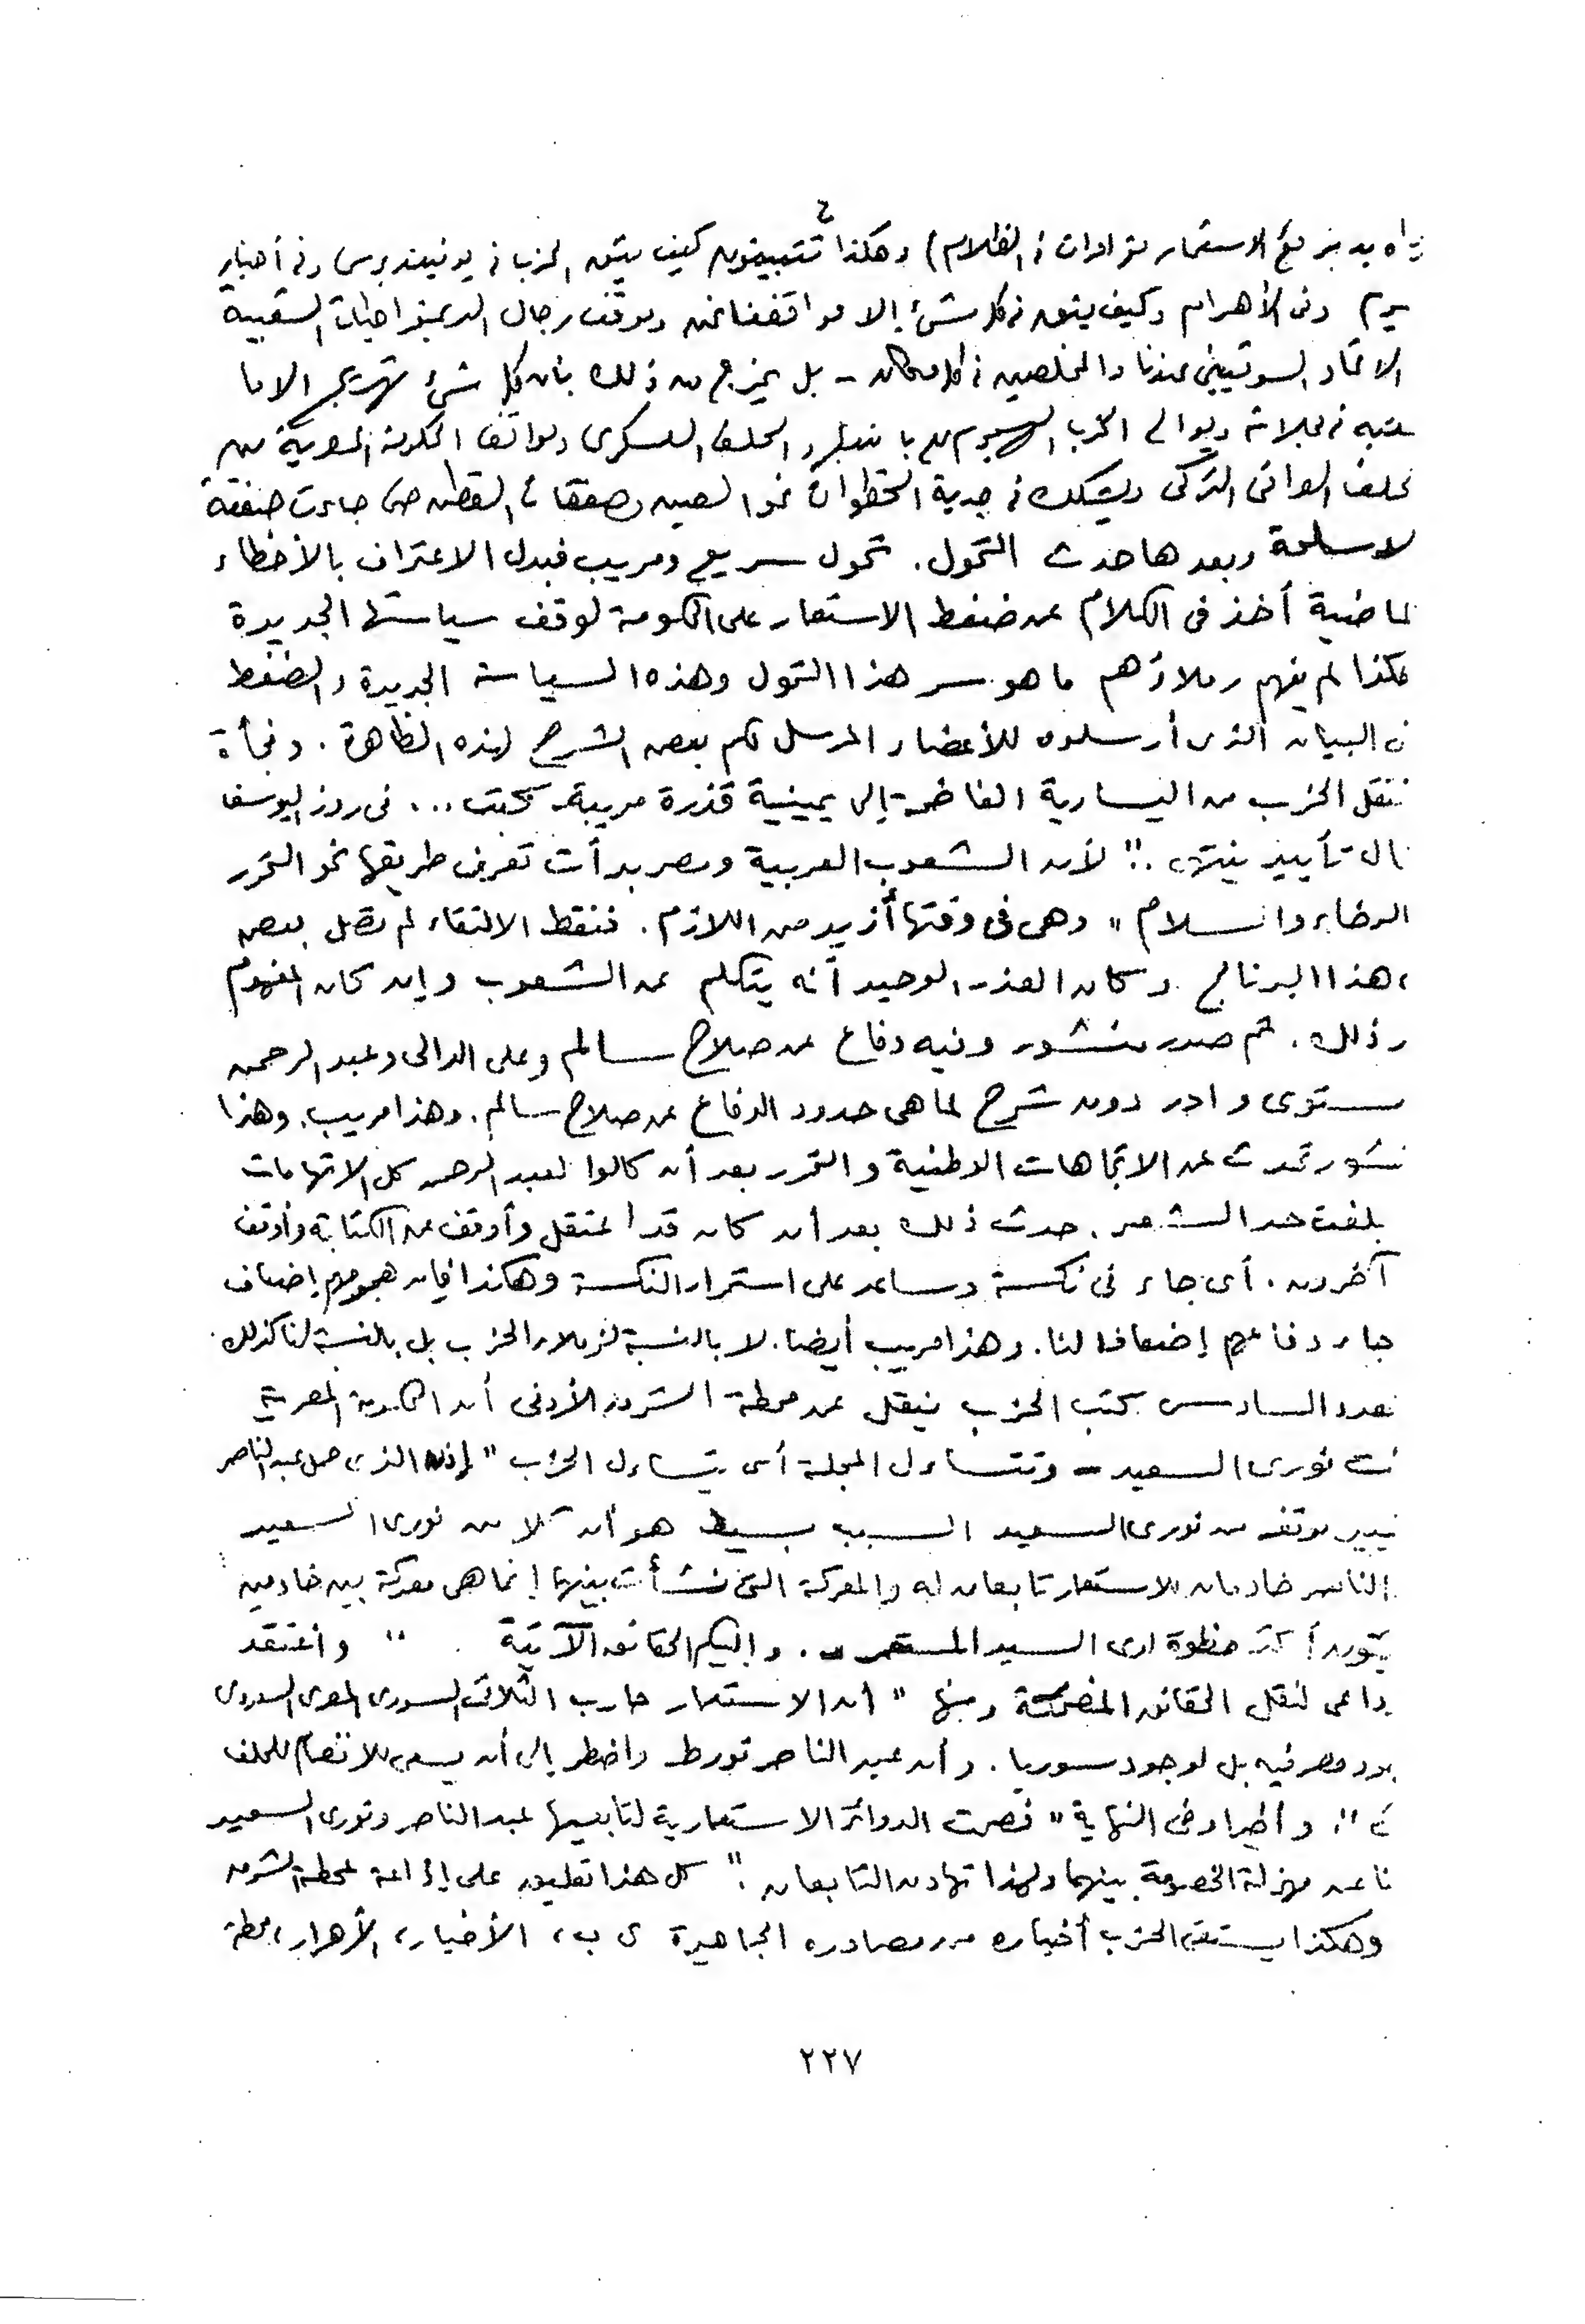 الاستعمار مؤامرات فى الظلام) وهكذا كيف يثق الحزب فى يونيتدبرس وفى أخبار
وفى الأهرام وكيف يثق فى كل شئ إلا مواقفنا نحن وموقف رجال الديمقراطيات الشعبية
الاتحاد السوتييتى عندنا والمخلصين فى كل مكان - بل يخرج من ذلك بأن كل شئ تهريج الا ما
فى مجلاته ويوالى الحزب الهجوم والحلف العسكرى ومواقف الحكومة المصرية من
حلف العراقى التركى ويشكك فى جدية الخطوات نحو الصين وصفقات القطن حتى جاءت صفقة
لاسلحة وبعدها حدث التحول . تحول سريع ومريب فبدل الاعتراف بالأخطاء
لماضية أخذ فى الكلام عن ضغط الاستعمار على الحكومة لوقف سياستها الجديدة
هكذا لم يفهم زملاؤهم ما هو سر هذا التحول وهذه السياسة الجديدة والضغط
البيان الذى أرسلوه للأعضاء المرسل لكم بعض الشرح لهذه الظاهرة . وفجأة
نتقل الحزب من اليسارية الفاضحة إلى يمينية قذرة مريبة فكتب ... فى روز اليوسف
تأييد بينتى ." لأن الشعوب العربية ومصر بدأت تعرف طريقها نحو التحرر
الرخاء والسلام " وهى فى وقتها أزيد من اللازم . فنقط الالتقاء لم تصل بعض
هذا البرنامج وكان العذر الوحيد أنه يتكلم عن الشعوب وإن كان المفهوم
ر ذلك . ثم صدر منشور وفيه دفاع عن صلاح سالم وعلى الدالى وعبد الرحمن
ستوى وادر دون شرح لما هى حدود الدفاع عن صلاح سالم . وهذا مريب . وهذا
نشور تحدث عن الاتجاهات الوطنية والتحرر بعد أن كالوا لعبد الرحمن كل الاتهامات
بلغت حد التشهير . حدث ذلك بعد أن كان قد اعتقل وأوقف عن الكتابة وأوقف
آخرون . أى جاء فى نكسة وساعد على استمرار النكسة وهكذا فإن هجومهم إضعاف
جاء دفاعهم إضعافا لنا . وهذا مريب أيضا . لا بالنسبة لزملاء الحزب بل بالنسبة لنا كذلك .
لعدد السادس كتب الحزب ينقل عن محطة الشرق الأدنى أن الحكومة المصرية
نورى السعيد - وتتساءل المجلة أى يتساءل الحزب " الذى حمل عبد الناصر
موقفه من نورى السعيد السبب بسيط هو أن كلا من نورى السعيد
الناصر خادمان للاستعمار تابعان له والمعركة التى نشأت بينهما إنما هى معركة بين خادمين
أكثر حظوة لدى السيد المستعمر . وإليكم الحقائق الآتية . " وأعتقد
داعى لنقل الحقائق المضحكة ومنها " أن الاستعمار حارب الثلاثى السورى المصرى السعودى
جود مصر فيه بل لوجود سوريا . وأن عبد الناصر تورط واضطر إلى أن يسعى للانضمام للحلف
" وأخيرا وفى النهاية " نصحت الدوائر الاستعمارية لتابعيها عبد الناصر ونورى السعيد
عن مهزلة الخصومة بينهما ولهذا تهادن التابعان ." كل هذا تعليق على إذاعة لمحطة الشرق
وهكذا يستقى الحزب أخباره من مصادره الجاهيرة ى ب ، الأخبار ، الأهرام ، محطة
٢٢٧